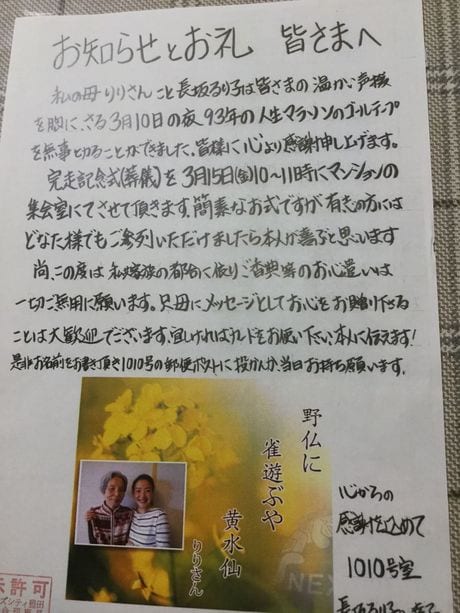 お知らせとお礼 皆さまへ
私の母りりさんこと長坂るり子は皆さまの温かい声援
を胸に、さる3月10日の夜、93年の人生マラソンのゴールテープ
を無事切ることができました、皆様に心より感謝申し上げます。
完走記念式(葬儀)を3月15日(金)10〜11時にマンションの
集会室にてさせて頂きます。簡素なお式ですが有志の方には
どなた様でもご参列いただけましたら本人が喜ぶと思います
尚、この度は私共家族の都合に依りご香典等のお心遣いは
一切ご無用に願います。只母にメッセージとしてお心をお贈り下さる
ことは大歓迎でございます、宜しければカードをお使い下さい、本人に伝えます!
是非お名前をお書き頂き1010号の郵便ポストに投かんか、当日お持ち願います。
野仏に
雀遊ぶや
黄水仙
りりさん
NEX
心からの
感謝を込めて
1010号室
長坂
許可